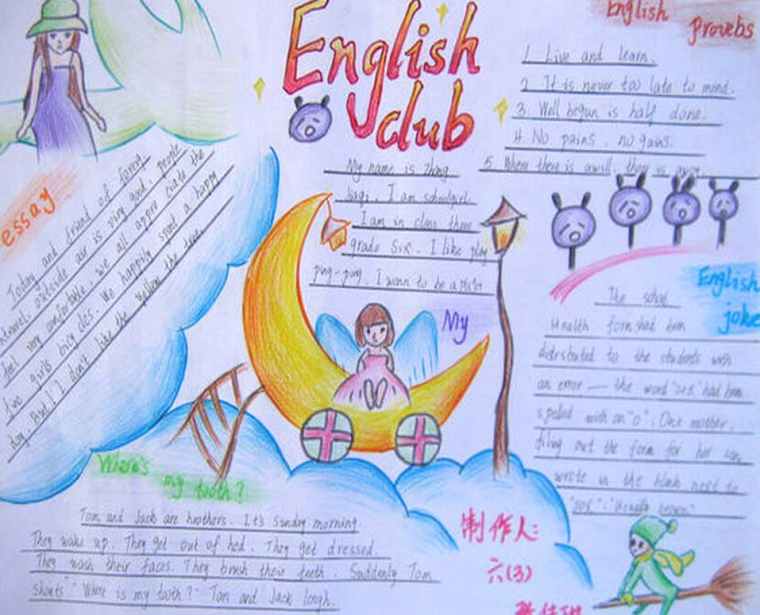 English
club
English
Proverbs
1. Live and learn.
2. It is never too late to mend.
3. Well begun is half done.
4. No pains, no gains.
5. Where there is a will, they is
essay
Today and friend of
outside air is very good, people
feel very comfortable, we all appre ciate the
two girls bicy cles. We happily spent a happy
day. And I don't like the the tree.
My name is Zhang
I am schoolgirl
I am in class three
grade six. I like play
ping-ping. I wann to be a
My
English
joke
The
Health form had been
distributed to the students with
an error — the word had been
spelled with an "o". One mother,
filing out the form for her son
wrote in the blank next to
Where's
my tooth?
Tom and Jack are brothers. It's sunday morning.
They wake up. They get out of bed. They get dressed.
They wash their faces. They brush their teeth. Suddenly Tom
shouts: "Where is my tooth?" Tom and Jack laugh.
制作人:
六(3)